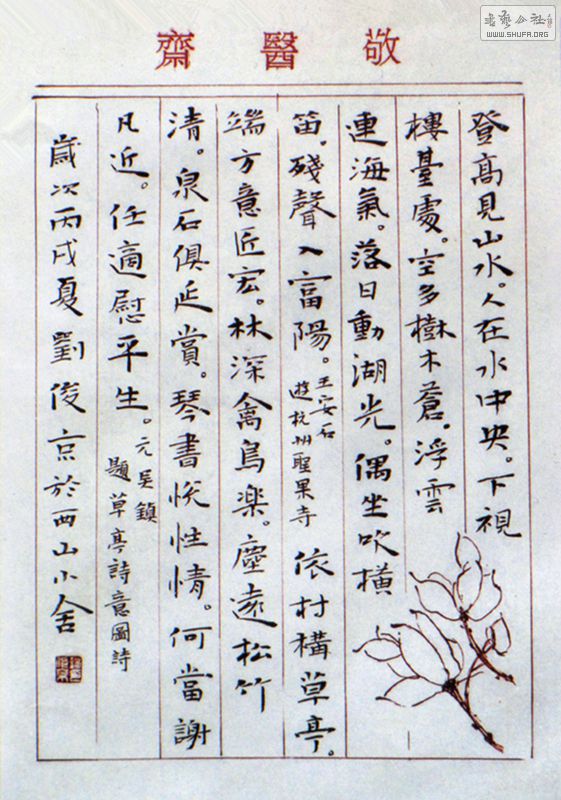 書藝公社
WWW.SHUFA.ORG
敬醫齋
登高見山水。人在水中央。下視
樓臺處。空多樹木蒼。浮雲
連海氣。落日動湖光。偶坐吹橫
笛。殘聲入富陽。王安石遊杭州聖果寺 依村構草亭。
端方意匠宏。林深禽鳥楽。塵遠松竹
清。泉石俱延賞。琴書悅性情。何當謝
凡近。任適慰平生。元吳鎮題草亭詩意圖詩
歲次丙戌夏劉俊京於西山小舍